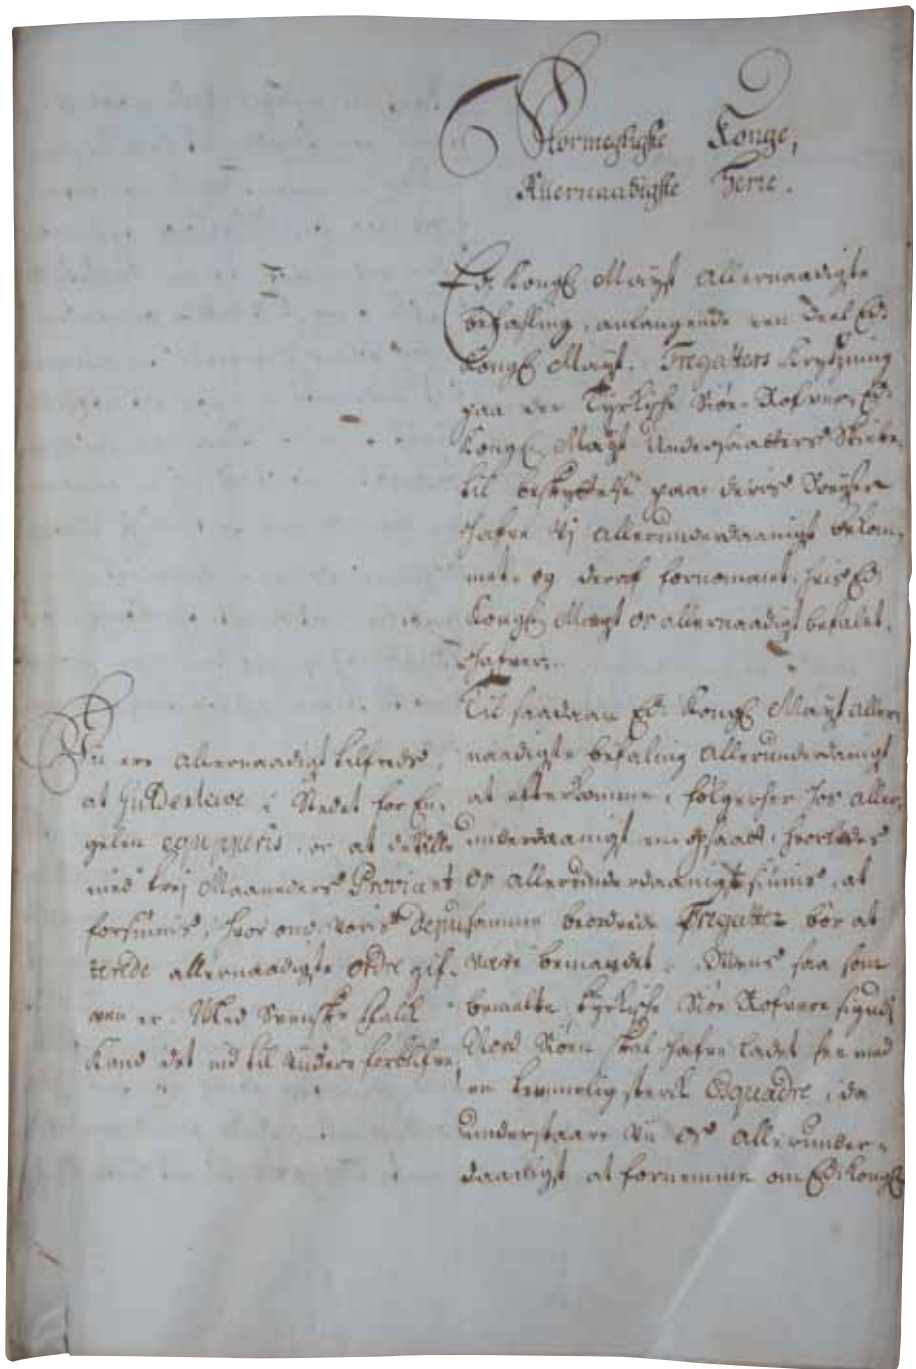 Stormegtigste Konge,
Allernaadigste Herre.
Ed. Kongl Mayst allernaadigte
befahling, anlangende een Deel Ed.
Kongl Mayst. Fregatters Krydzning
paa de Tyrkishe Siøe-Rofvere, Ed.
Kongl. Mayst Undersaatters Skibe,
til beskyttelse paa deris Reyser
hafve Vj allerunderdaanigst bekom,
met, og deraf fornommet, hvis Ed.
Kongl. Mayst os allernaadigst befalet,
hafver.
Til saadan Ed. Kongl Mayst aller,
naadigste befaling allerunderdanigst
at efterkomme, følger her hos aller,
underdaanigst en opsaatt, hvorledes
os allerunderdaanigst siunes, at
samme beordrede Fregatter bør at
være bemandet. Mens saa som
bemelte Tyrkishe Siøe Rofvere siges
Nord Siøen skal hafve ladet see med
en temmelig sterck Esquadre, da
understaar vii os allerunder-
daanigst at fornemme om Ed. Kongl
Vii ere allernaadigst tilfreds,
at Gyldenlewe i Stedet for En-
gelen equipperis, og at de alle
med trej Maaneders Proviant
forsiunes, hvorom voris Depu-
terede allernaadigste Ordre gif-
ven er. Med Svenske Hall
Kand det nid til videre forblifve.